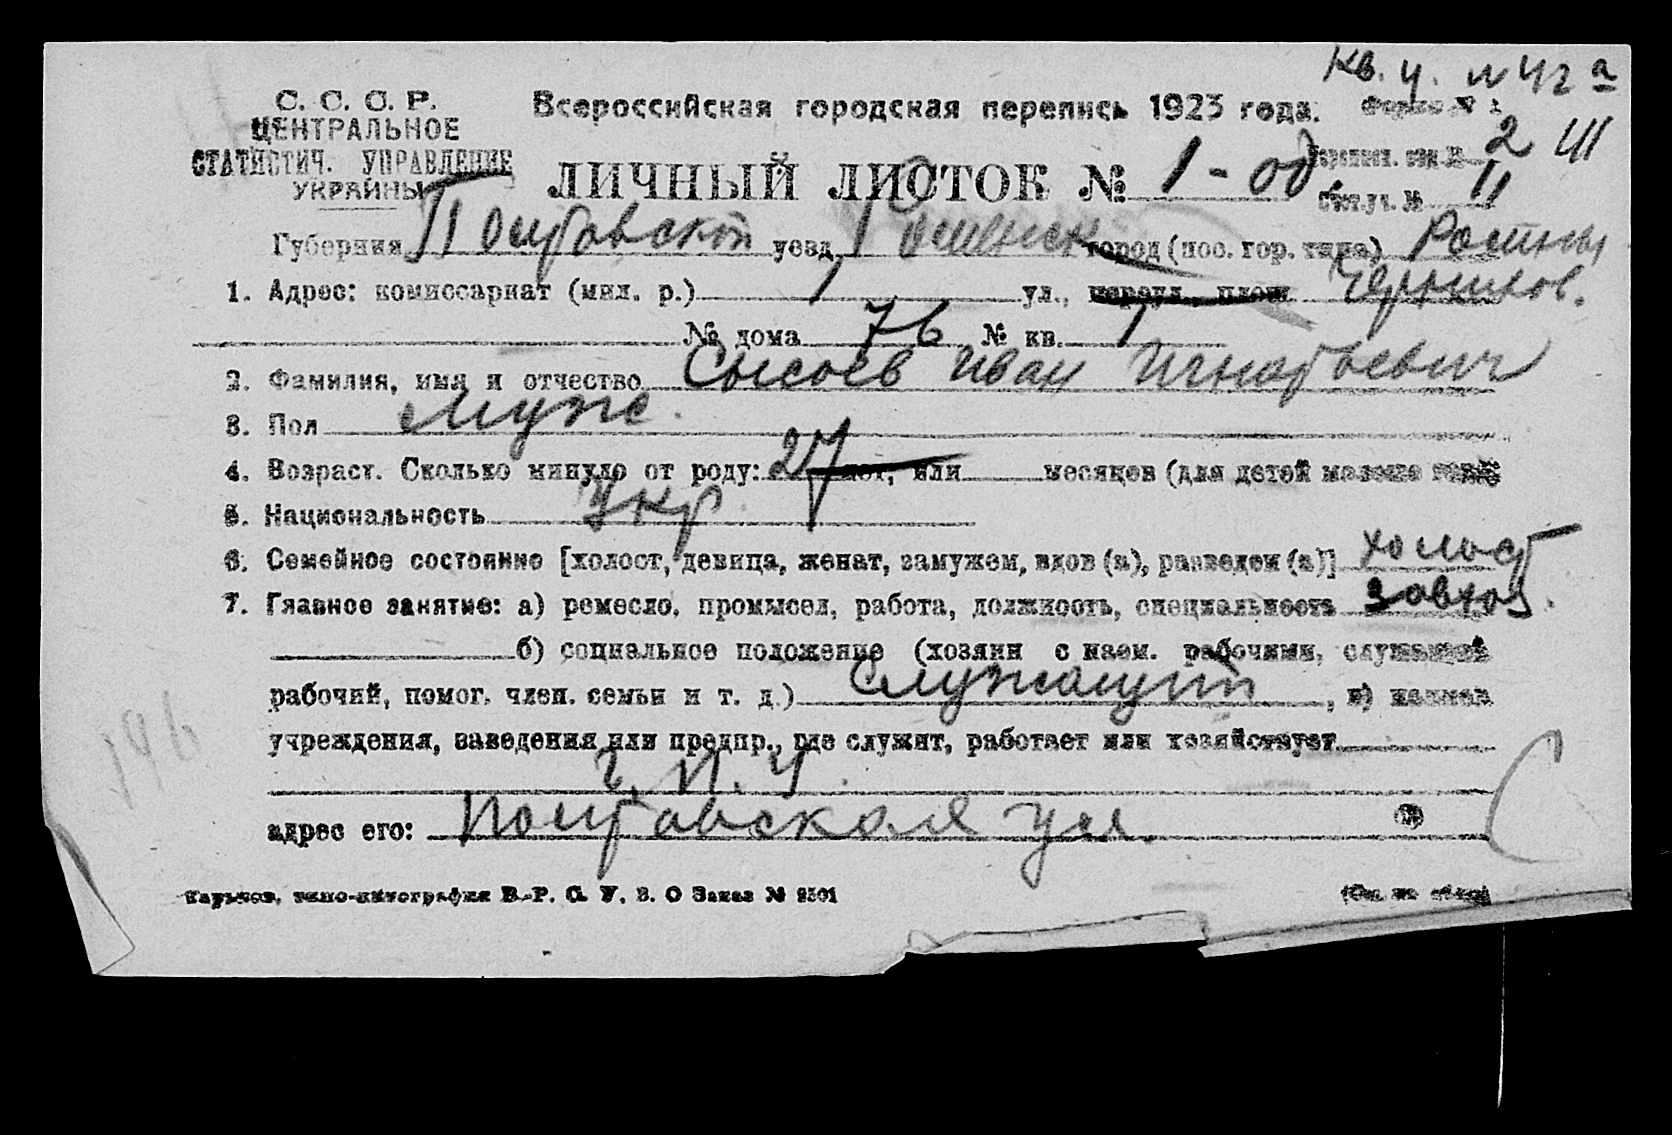 Кв. ч. № 42 а
С. С. С. Р.
ЦЕНТРАЛЬНОЕ
СТАТИСТИЧ. УПРАВЛЕНИЕ
УКРАИНЫ
Всероссийская городская перепись 1923 года.
Форма № 1
ЛИЧНЫЙ ЛИСТОК № 1 - од.
Переписн. отд. № 2 III
Счет. уч. № 11
Губерния Полтавской уезд Роменск город (пос. гор. типа) Ромны
1. Адрес: комиссариат (мил. р.) 1 ул., переул., площ Чернихов.
№ дома 76 № кв. 1
2. Фамилия, имя и отчество Сысоев Иван Игнатьевич
3. Пол Муж.
4. Возраст. Сколько минуло от роду: 27 лет, или месяцев (для детей моложе
5. Национальность Укр.
6. Семейное состояние [холост, девица, женат, замужем, вдов (а), разведен (а)] холост
7. Главное занятие: а) ремесло, промысел, работа, должность, специальность завхоз.
б) социальное положение (хозяин с наем. рабочими, служащий
рабочий, помог. член. семьи и т. д.) Служащий, в)
учреждения, заведения или предпр., где служит, работает или хозяйствует
Г. П. У.
адрес его: Полтавская ул.
196
Харьков, типо-литография В.-Р. С. У. В. О Заказ № 2501
(См. на обор.)